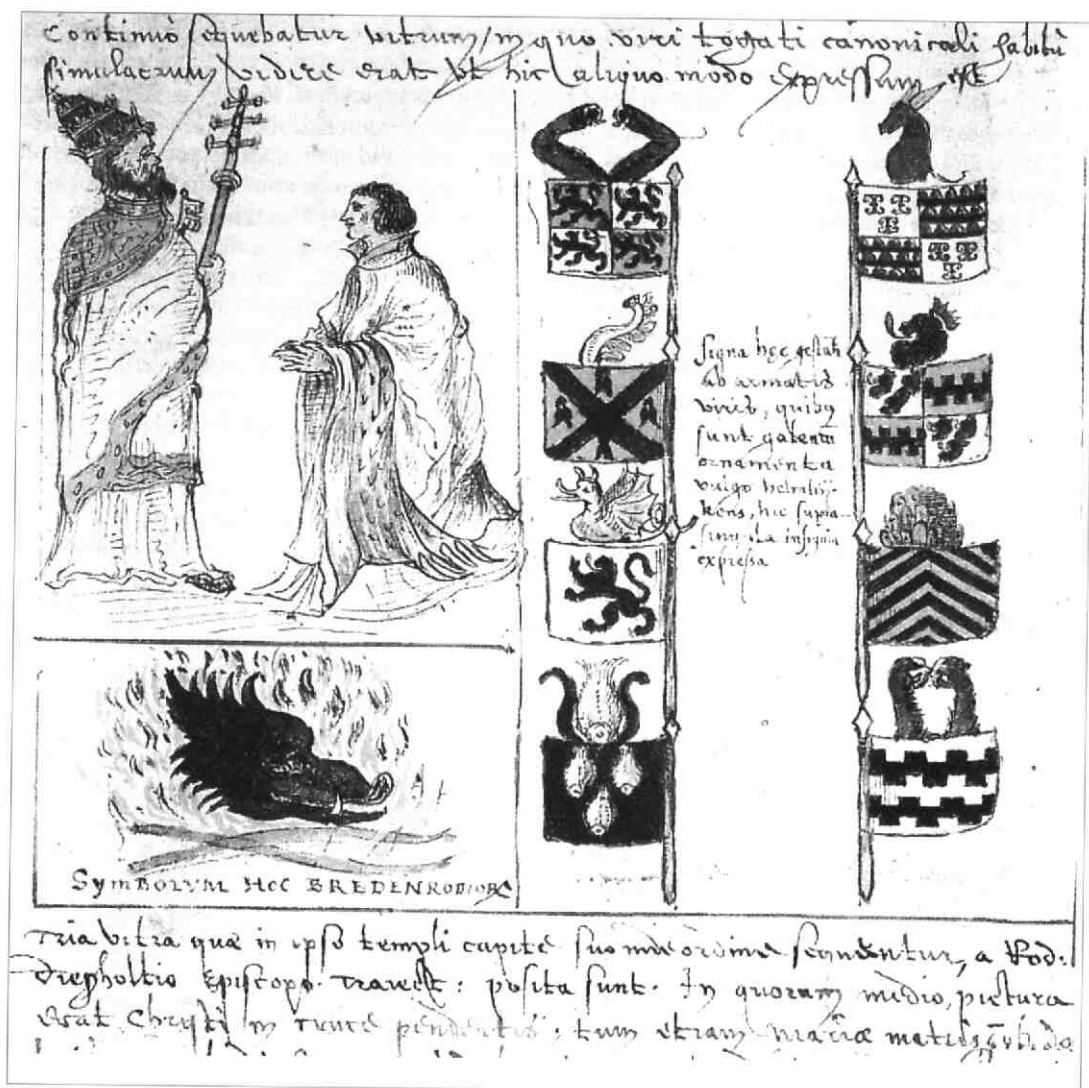 Continuò sequebatur vitrum, in quo viri togati canonicali habitu
simulacrum videre erat vt hic aliquo modo expressum est
signa hęc gestata
ab armatis
viris, quibus
sunt galearum
ornamenta
vulgo
kens, hic supra
singula insignia
expressa
SYMBOLVM HOC BREDENRODIOR
Tria vitra quæ in ipso templi capite suo inde ordine sequentur, a Rod:
Diepholtio Episcopo Traiect: posita sunt. In quorum medio, pictura
erat Christi in cruce pendentis; tum etiam mariæ matris